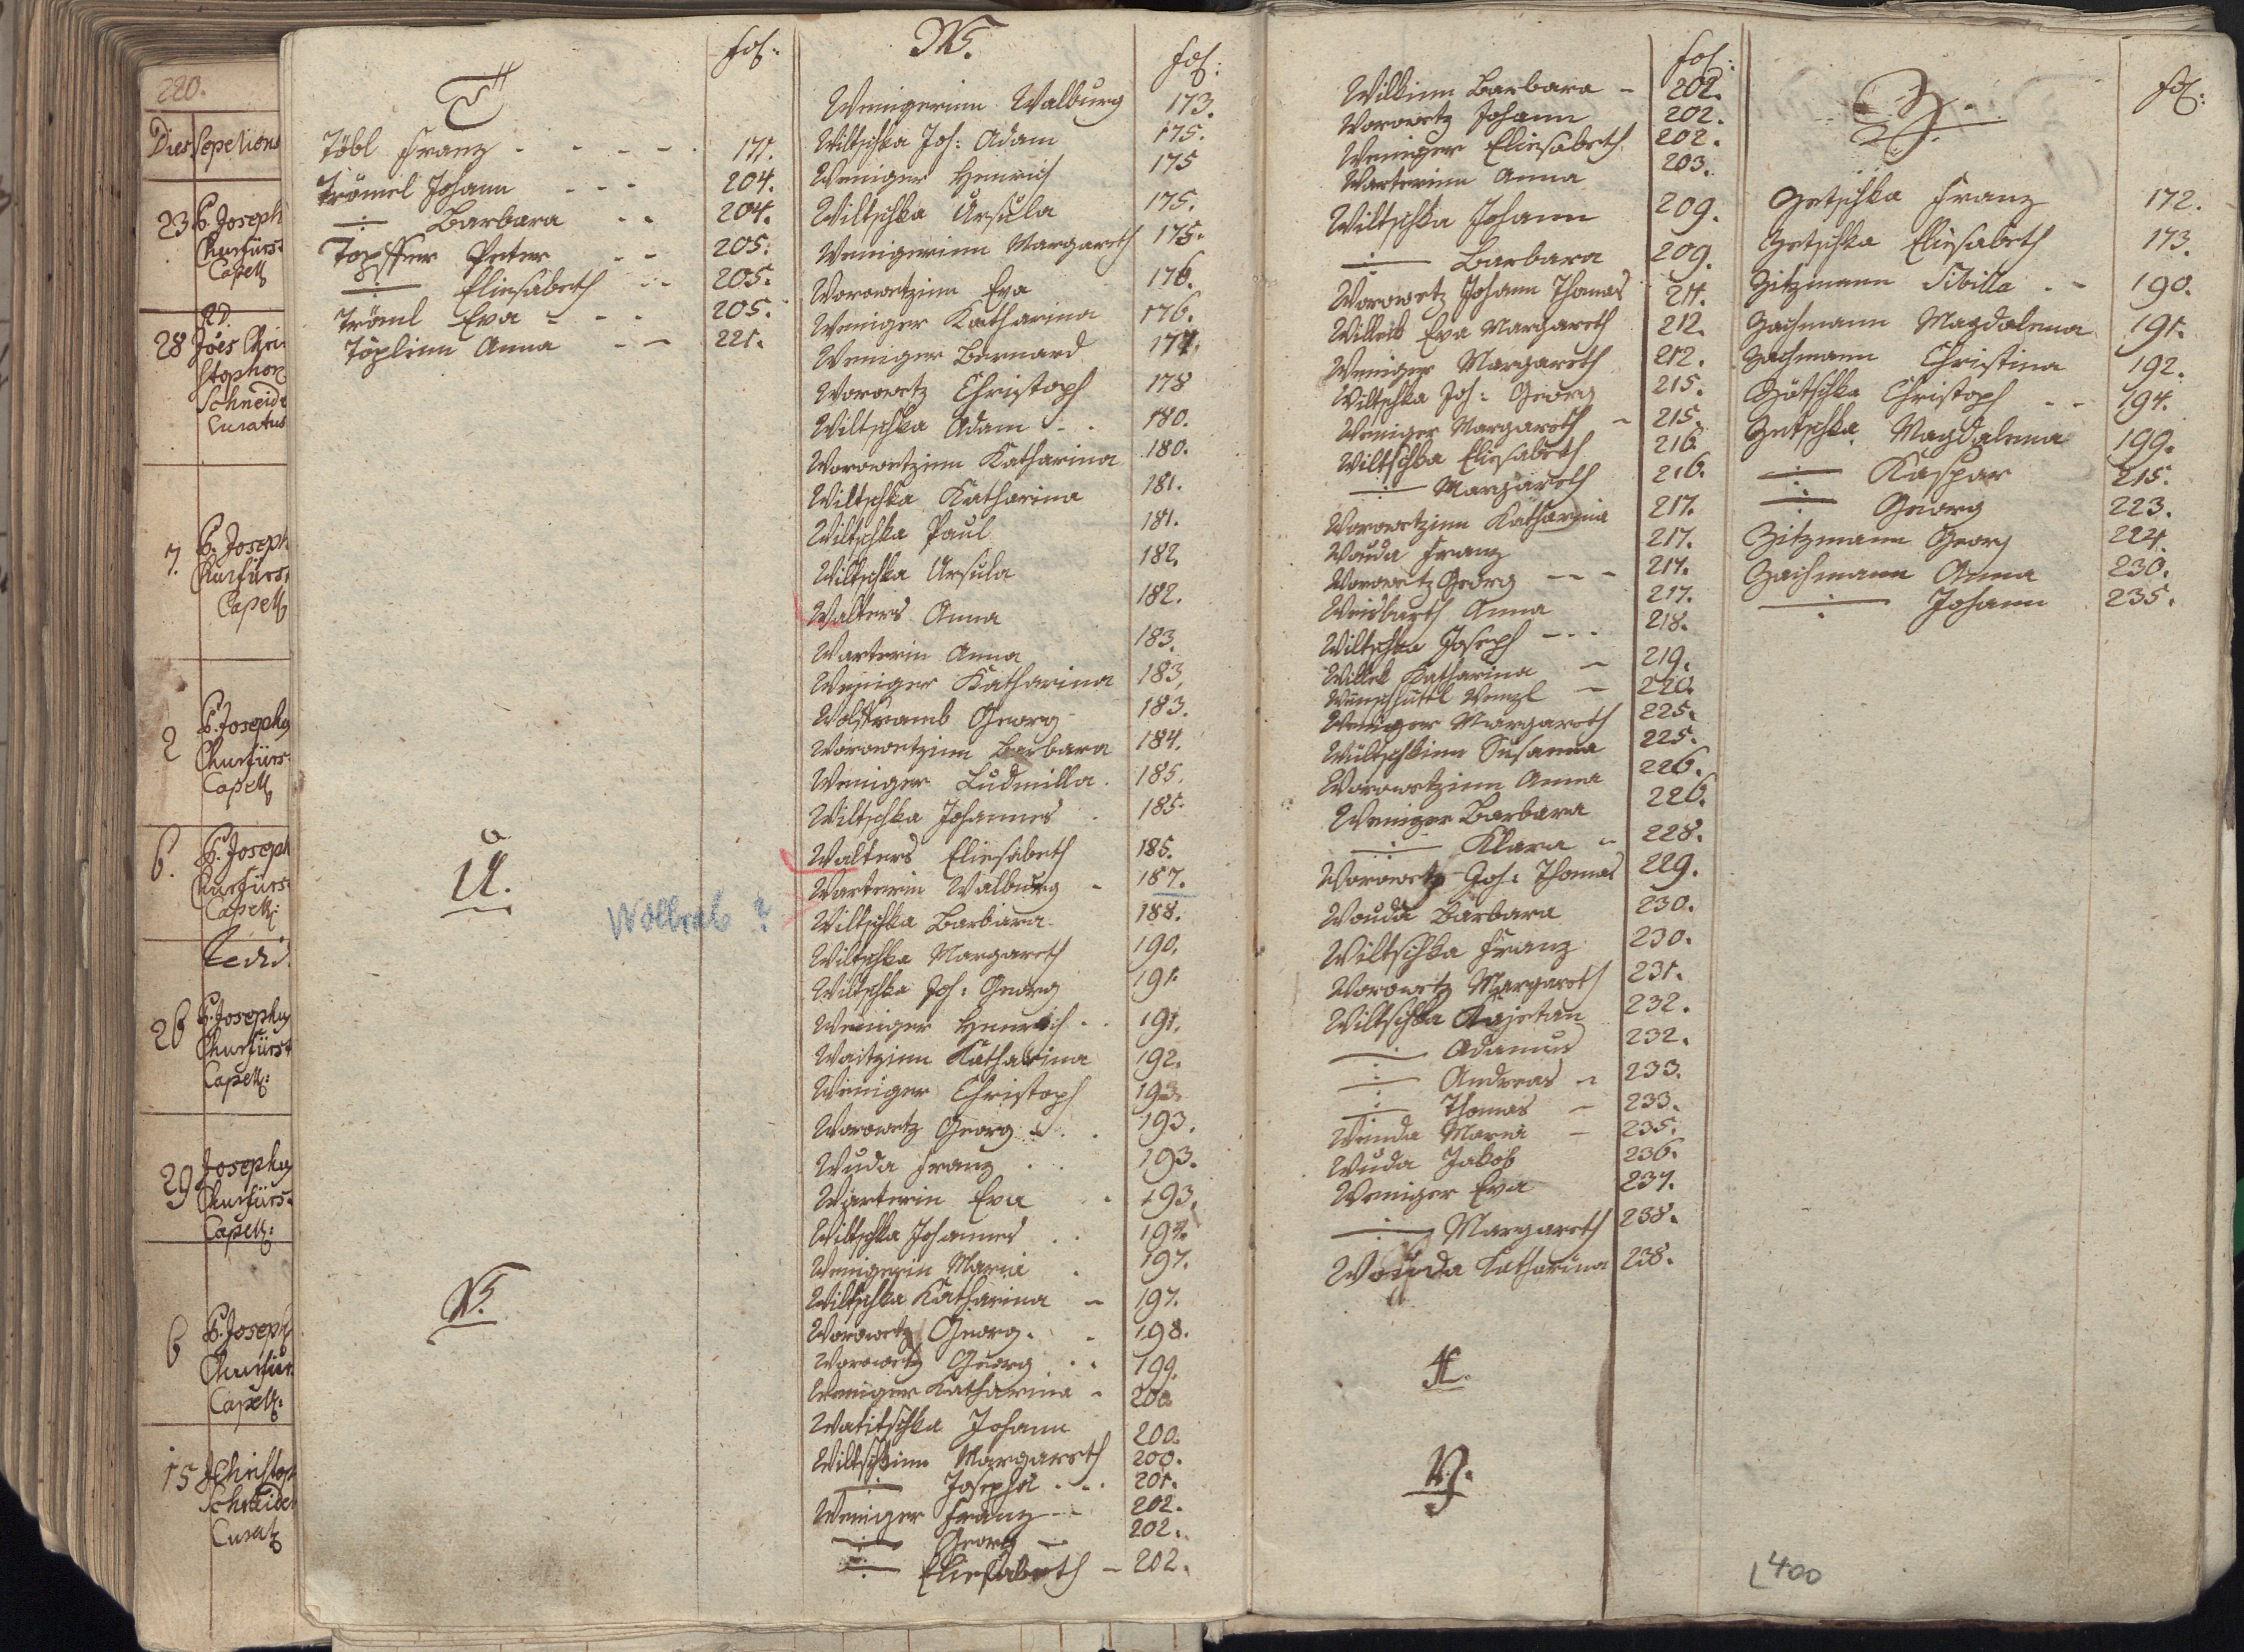 220.
Dies Sepelions
23 P. Joseph
Churfürst
Capell
28 Joes Chri
stophor
Schneide
Curatus
7. P. Joseph
Churfürs
Capell
2 P. Josephg
Churfürs
Capell
6. P. Joseph
Churfürs
Capell:
26 P. Josephg
Churfürst
Capell:
29 Josephg
Churfürs
Capell:
6 P. Joseph
Churfür
Capell:
15 Christop
Schneider
Curat
T fol:
Töbl Franz - - - - 171.
Trömel Johann - - - 204.
-:- Barbara - - 204.
Topffer Peter - - 205.
-:- Eliesabeth - - 205.
Tröml Eva - - - 205.
Töplinn Anna - - 221.
U.
Wollrab ?
V.
W. fol:
Wenigerinn Walburg 173.
Wiltschka Joh: Adam 175.
Weniger Henrich 175
Wiltschka Ursula 175.
Wenigerinn Margareth 175.
Worowetzinn Eva 176.
Weniger Katharina 176.
Weniger Bernard 177.
Worowetz Christoph 178
Wiltschka Adam - - 180.
Worowetzinn Katharina 180.
Wiltschka Katharina 181.
Wiltschka Paul 181.
Wiltschka Ursula 182.
Walters Anna 182.
Warterin Anna 183.
Weniger Katharina 183.
Wolframb Georg 183.
Worowetzinn Barbara 184.
Weniger Ludmilla . 185.
Wiltschka Johannes . 185.
Walters Eliesabeth 185.
Warterin Walburg - 187.
Wiltschka Barbara 188.
Wiltschka Margareth 190.
Wiltschka Joh: Georg 191.
Weniger Henrich . . 191.
Waitzinn Katharina 192.
Weniger Christoph 193.
Worowetz Georg . . 193.
Wuda Franz . . 193.
Warterin Eva . 193.
Wiltschka Johannes . . 197.
Wenigerin Maria . 197.
Wiltschka Katharina - 197.
Worowetz Georg. - 198.
Worowetz Georg . . 199.
Weniger Katharina - 200.
Watitschka Johann 200.
Wiltschkinn Margareth 200.
-:- Josepha . . . 201.
Weniger Franz - - 202.
-:- Georg - 202.
-:- Eliesabeth - 202.
fol:
Willinn Barbara - 202.
Worowetz Johann 202.
Weniger Eliesabeth 202.
Warterinn Anna 203.
Wiltschka Johann 209.
-:- Barbara 209.
Worowetz Johann Thomas 211.
Willeib Eva Margareth 212.
Weniger Margareth 212.
Wiltschka Joh: Georg 215.
Weniger Margareth - 215.
Wiltschka Eliesabeth 216.
-:- Margareth 216.
Worowetzinn Katharina 217.
Wouda Franz 217.
Worowetz Georg - - - 217.
Weisbarth Anna 217.
Wiltschka Joseph - - - 218.
Willeb Katharina - 219.
Wünschüttl Wenzl - 220.
Weniger Margareth 225.
Wültschkinn Susanna 225.
Worowetzinn Anna 226.
Weniger Barbara 226.
-:- Klara - 228.
Worowetz Joh: Thomas 229.
Wouda Barbara 230.
Wiltschka Franz 230.
Worowetz Margareth 231.
Wiltschka Kajetan 232.
-:- Adamus 232.
-:- Andreas - 233.
-:- Thomas - 233.
Wunda Maria - 235.
Wuda Jakob 236.
Weniger Eva 237.
-:- Margareth 238.
Wouda Katharina 238.
X.
Y.
Z. fol:
Zetschka Franz 172.
Zetschka Eliesabeth 173.
Zitzmann Sibilla . - 190.
Zachmann Magdalena 191.
Zachmann Christina 192.
Zötschka Christoph - - 194.
Zetschka Magdalena 199.
-:- Kaspar 215.
-:- Georg 223.
Zitzmann Georg 224.
Zachmann Anna 230.
-:- Johann 235.
400